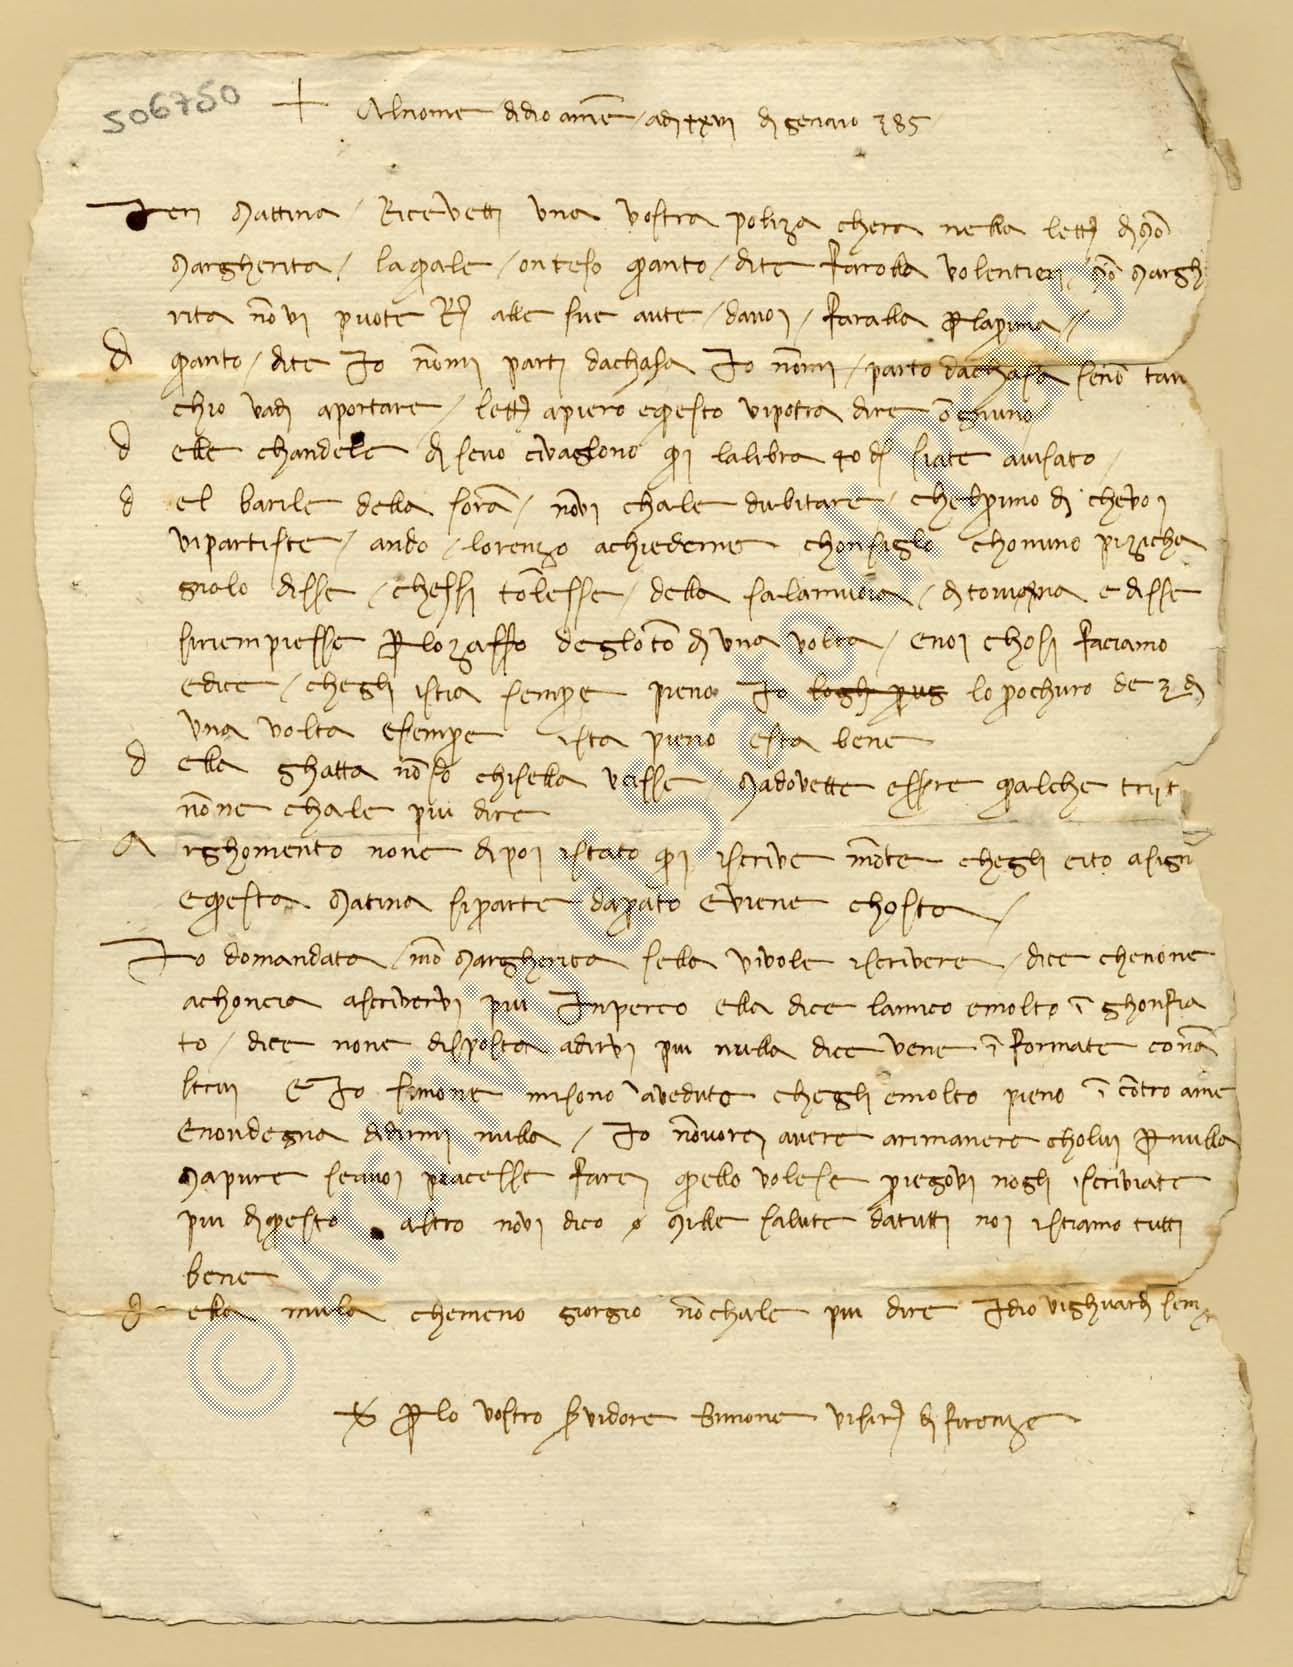 506750
+ Al nome di dio ame adi xxvi di genaio 385
Ieri mattina / Ricevetti una vostra poliza chera nella lett di mo
margherita / la quale / o nteso quanto / dite Farolla volentieri mo margh
rita no vi puote R alle sue aute / da voi / Faralla P la prima //
d quanto / dite Io nomi parti da chasa Io nomi / parto da chasa seno tan
chio vadi a portare / lett a piero e questo vi potra dire ogniuno
d elle chandele di sevo ci vaglono qui la libra 40 d siate avisato /
d el barile della sora / no vi chale dubitare / chel primo di che voi
vi partiste / ando / lorenzo a chiederne chonsiglo chon uno piziche
giolo disse / chessi tolesse / della salamuoia / di tonina e disse
si riempiesse P lo zaffo degloto di una volta / e noi chosi Faciamo
e dice / chegli istia sempre pieno Io lo prochuro de 3 di
una volta e sempre ista pieno e sta bene
d ella ghatta no so chi sella ucisse / ma dovette essere qualche trist
no ne chale piu dire
Arghomento none di poi istato qui iscrive mote chegli eito a signi
e questa matina si parte da prato e viene chosta /
Io domandata / mo margherita sella vi vole iscrivere / dice che none
achoncia a scrivervi piu Inperco ella dice lamico e molto i ghonfia
to / dice none disposta a dirvi piu nulla dice vene i formate co na
ltrui E Io simone mi sono aveduto chegli e molto pieno i contro a me
e non degna di dirmi nulla / Io no vorei avere a rimanere cholui P nulla
ma pure se a voi piacesse farei quello volese priegovi no gli iscriviate
piu di questo altro no vi dico / mille salute da tutti noi istiamo tutti
bene
d ella mula che meno giorgio no chale piu dire Idio vi ghuardi semp
P lo vostro servidore Simone vi si R di firenze
© Archivio di Stato di Prato